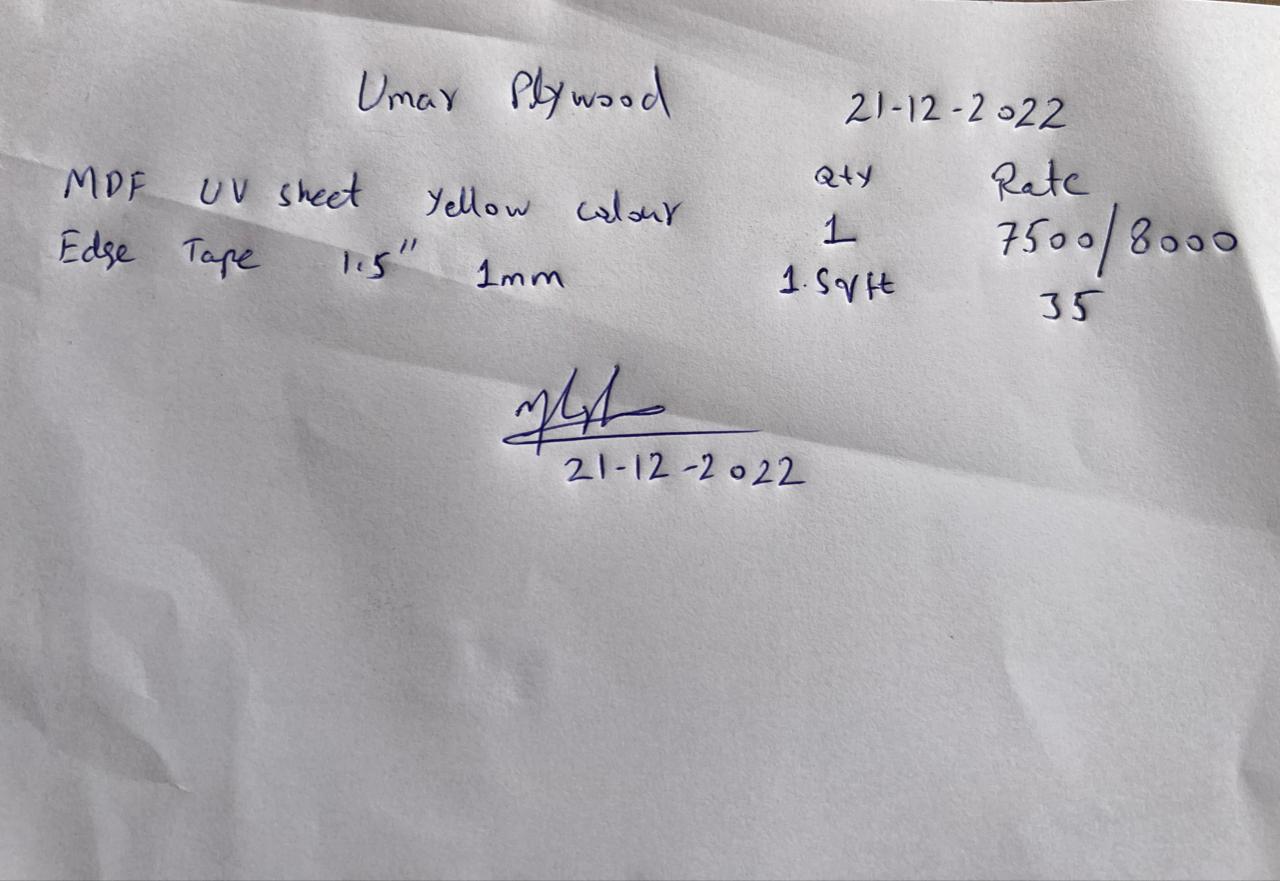 Umar Plywood 21-12-2022
Qty Rate
MDF UV sheet yellow colour 1 7500/8000
Edge Tape 1.5" 1mm 1.Sqft 35
21-12-2022